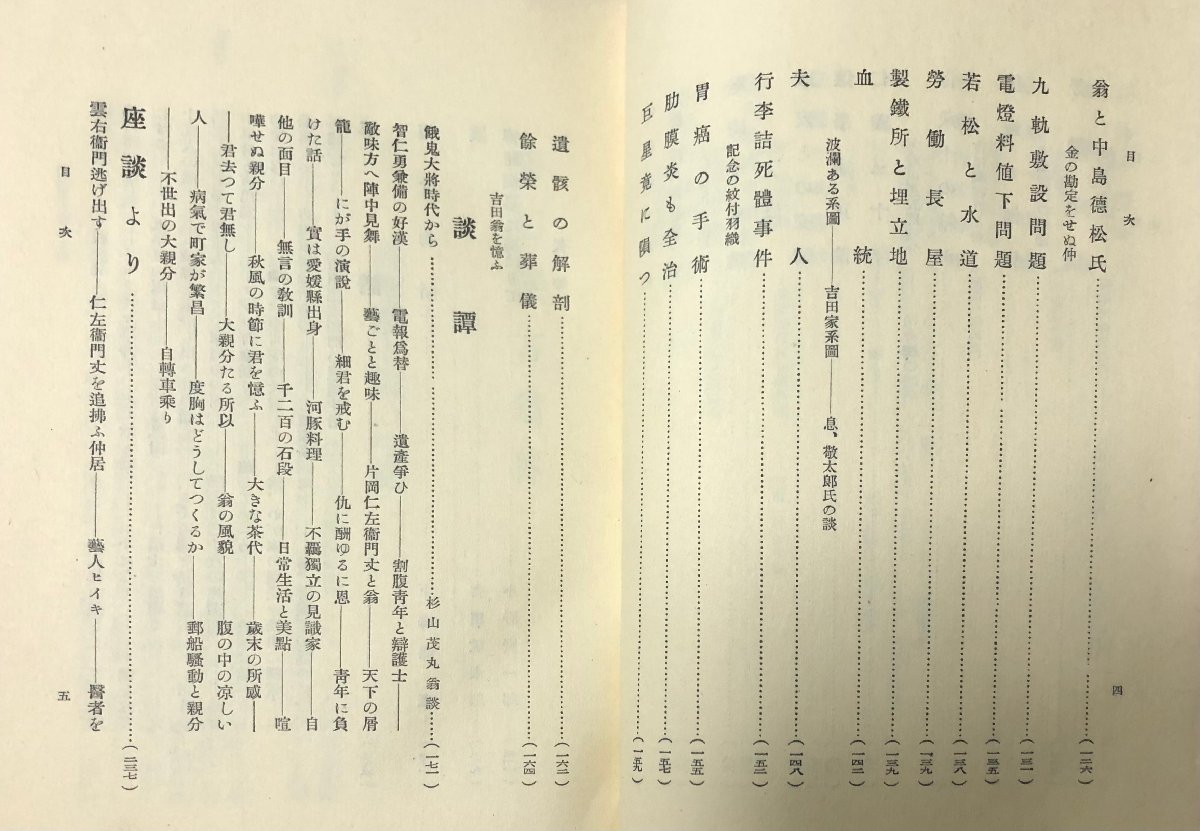 目次
四
翁と中島德松氏……(一二六)
金の勘定をせぬ仲
九軌敷設問題……(一三一)
電燈料値下問題……(一三五)
若松と水道……(一三八)
勞働長屋……(一三九)
製鐵所と埋立地……(一三九)
血統……(一四二)
波瀾ある系圖――吉田家系圖――息、敬太郎氏の談
夫人……(一四八)
行李詰死體事件……(一五二)
記念の紋付羽織
胃癌の手術……(一五五)
肋膜炎も全治……(一五七)
巨星竟に隕つ……(一五九)
遺骸の解剖……(一六二)
餘榮と葬儀……(一六四)
吉田翁を憶ふ
談譚
餓鬼大將時代から……杉山茂丸翁談……(一七一)
智仁勇兼備の好漢――電報爲替――遺產爭ひ――割腹靑年と辯護士――
敵味方へ陣中見舞――藝ごとと趣味――片岡仁左衞門丈と翁――天下の屑
籠――にが手の演說――細君を戒む――仇に酬ゆるに恩――靑年に負
けた話――實は愛媛縣出身――河豚料理――不羈獨立の見識家――自
他の面目――無言の敎訓――千二百の石段――日常生活と美點――喧
嘩せぬ親分――秋風の時節に君を憶ふ――大きな茶代――歲末の所感――
――君去つて君無し――大親分たる所以――翁の風貌――腹の中の凉しい
人――病氣で町家が繁昌――度胸はどうしてつくるか――郵船騷動と親分
――不世出の大親分――自轉車乘り
座談より……(二三七)
雲右衞門逃げ出す――仁左衞門丈を追拂ふ仲居――藝人ヒイキ――醫者を
目次
五